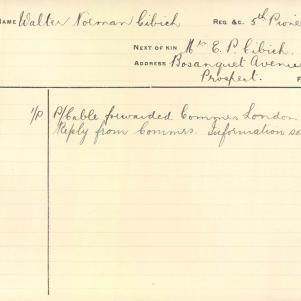 NAME Walter Norman Cibich REG. &C. 5th Pione
NEXT OF KIN Mrs E. P. Cibich.
ADDRESS Bosanquet Avenue
Prospect. F
1/P P/Cable forwarded Commrs London
Reply from Commrs. Information se